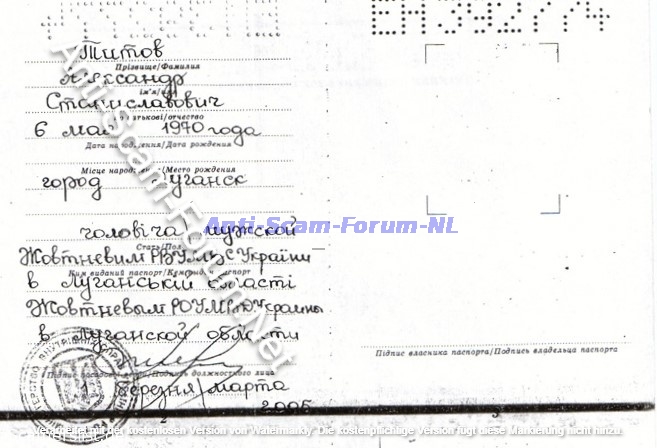 ЕН392774
Титов
Прізвище/Фамилия
Александр
ім'я/
Станиславович
батькові/отчество
6 мая 1970 года
Дата народження/Дата рождения
Місце народження/Место рождения
город Луганск
чоловіча/мужской
Стать/Пол
Жовтневим РВ УМВС України
Ким виданий паспорт/Кем выдан паспорт
в Луганській області
Жовтневым РО УМВД Украины
в Луганской области
Підпис посадової особи/Подпись должностного лица
березня/марта
2006
Підпис власника паспорта/Подпись владельца паспорта
2
3
Anti-Scam-Forum-NL
Anti-Scam-Forum.Net
Verarbeitet mit der kostenlosen Version von Watermarkly. Die kostenpflichtige Version fügt diese Markierung nicht hinzu.